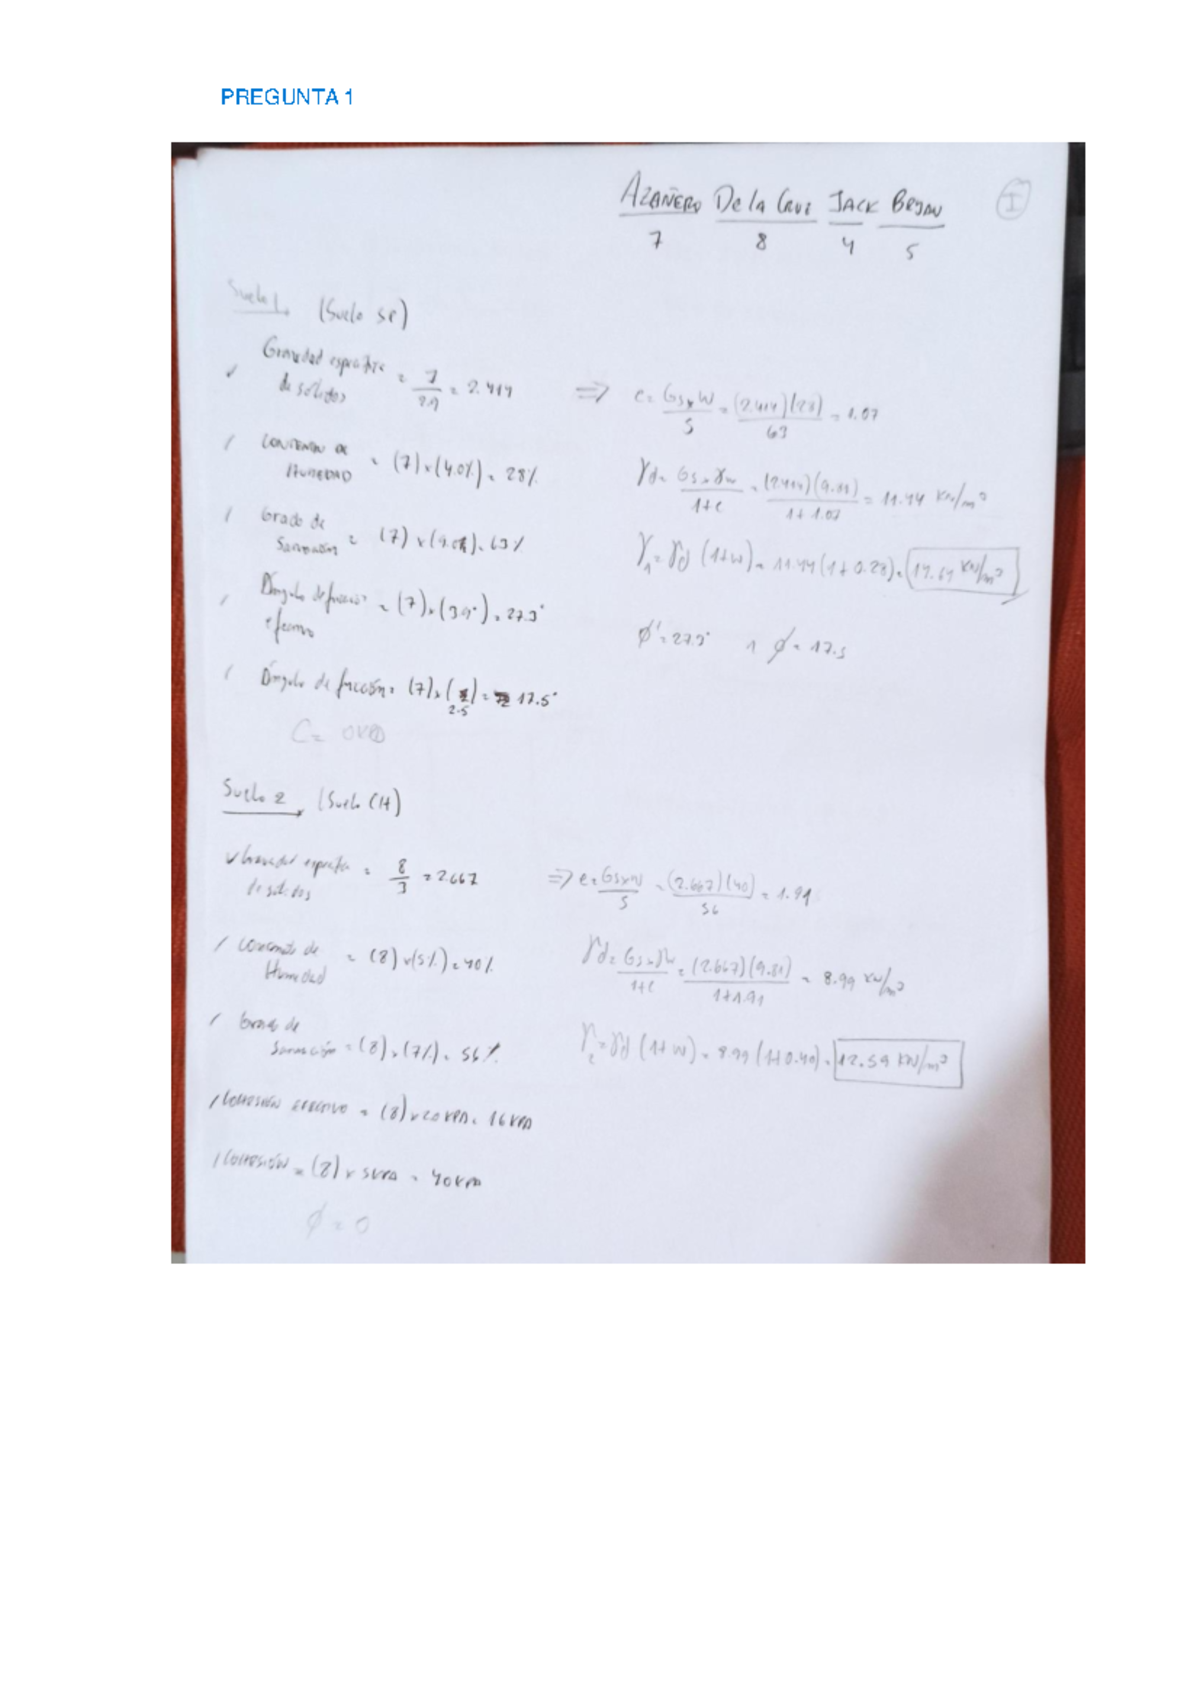 PREGUNTA 1
AZAÑERO De la Cruz JACK Bryan
I
7 8 4 5
Suelo 1. (Suelo SP)
Gravedad especifica de solidos = 7/2.9 = 2.414 => e = Gs x W/S = (2.414)(28)/63 = 1.07
CONTENIDO DE HUMEDAD = (7) x (4.0%) = 28%
γd = Gs x γw/1+e = (2.414)(9.81)/1+1.07 = 11.44 KN/m³
Grado de Saturación = (7) x (9.0%) = 63%
γ1 = γd (1+w) = 11.44 (1+0.28) = 14.64 KN/m³
Ángulo de fricción efectivo = (7) x (3.9°) = 27.3°
Ø' = 27.3° ^ Ø = 17.5
Ángulo de fricción = (7) x (2.5) = 17.5°
C = 0 KPA
Suelo 2 (Suelo CH)
Gravedad especifica de solidos = 8/3 = 2.667 => e = Gs x W/S = (2.667)(40)/56 = 1.91
Contenido de Humedad = (8) x (5%) = 40%
γd = Gs x γw/1+e = (2.667)(9.81)/1+1.91 = 8.99 KN/m³
Grado de Saturación = (8) x (7%) = 56%
γ2 = γd (1+w) = 8.99 (1+0.40) = 12.59 KN/m³
COHESIÓN EFECTIVO = (8) x 2.0 KPA = 16 KPA
COHESIÓN = (8) x 5 KPA = 40 KPA
Ø = 0